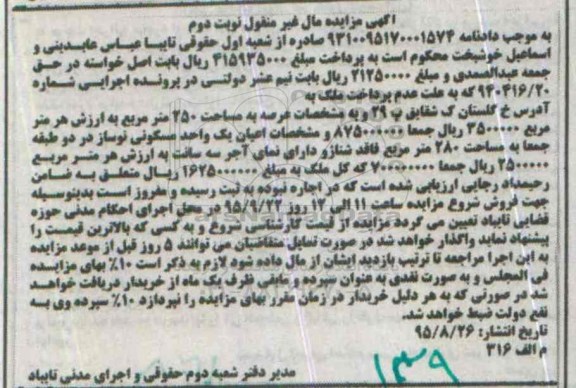 آگهی مزایده مال غیر منقول نوبت دوم
به موجب دادنامه ۹۳۱۰۰۹۵۱۷۰۰۰۱۵۷۴ صادره از شعبه اول حقوقی تایباد عباس عابدینی و
اسماعیل خوشبخت محکوم است به پرداخت مبلغ ۴۱۵۹۳۵۰۰۰ ریال بابت اصل خواسته در حق
جمعه عبدالصمدی و مبلغ ۲۱۲۵۰۰۰۰ ریال بابت نیم عشر دولتی در پرونده اجرایی شماره
۹۴۰۴۱۶/۲۰ که به علت عدم پرداخت ملک به
آدرس خ گلستان ک شقایق پ ۲۹ و به مشخصات عرصه به مساحت ۲۵۰ متر مربع به ارزش هر متر
مربع ۳۵۰۰۰۰۰ ریال جمعا ۸۷۵۰۰۰۰۰۰ و مشخصات اعیان یک واحد مسکونی نوساز در دو طبقه
جمعا به مساحت ۲۸۰ متر مربع فاقد شناژ و دارای نمای آجر سه سانت به ارزش هر متر مربع
۲۵۰۰۰۰۰ ریال جمعا ۷۰۰۰۰۰۰۰۰ که کل ملک به مبلغ ۱۶۲۵۰۰۰۰۰۰ ریال متعلق به ضامن
رحیمداد رجایی ارزیابی شده است که در اجاره نبوده به ثبت رسیده و مفروز است بدینوسیله
جهت فروش شروع مزایده ساعت ۱۱ الی ۱۲ روز ۹۵/۹/۲۲ در محل اجرای احکام مدنی حوزه
قضایی تایباد تعیین می گردد مزایده از قیمت کارشناسی شروع و به کسی که بالاترین قیمت را
پیشنهاد نماید واگذار خواهد شد در صورت تمایل متقاضیان می توانند ۵ روز قبل از موعد مزایده
به این اجرا مراجعه تا ترتیب بازدید ایشان از مال داده شود لازم به ذکر است ۱۰٪ بهای مزایده
فی المجلس و به صورت نقدی به عنوان سپرده و مابقی ظرف یک ماه از خریدار دریافت خواهد
شد در صورتی که به هر دلیل خریدار در زمان مقرر بهای مزایده را نپردازد ۱۰٪ سپرده وی به
نفع دولت ضبط خواهد شد.
تاریخ انتشار: ۹۵/۸/۲۶
م الف ۳۱۶
مدیر دفتر شعبه دوم حقوقی و اجرای مدنی تایباد
۱۳۹